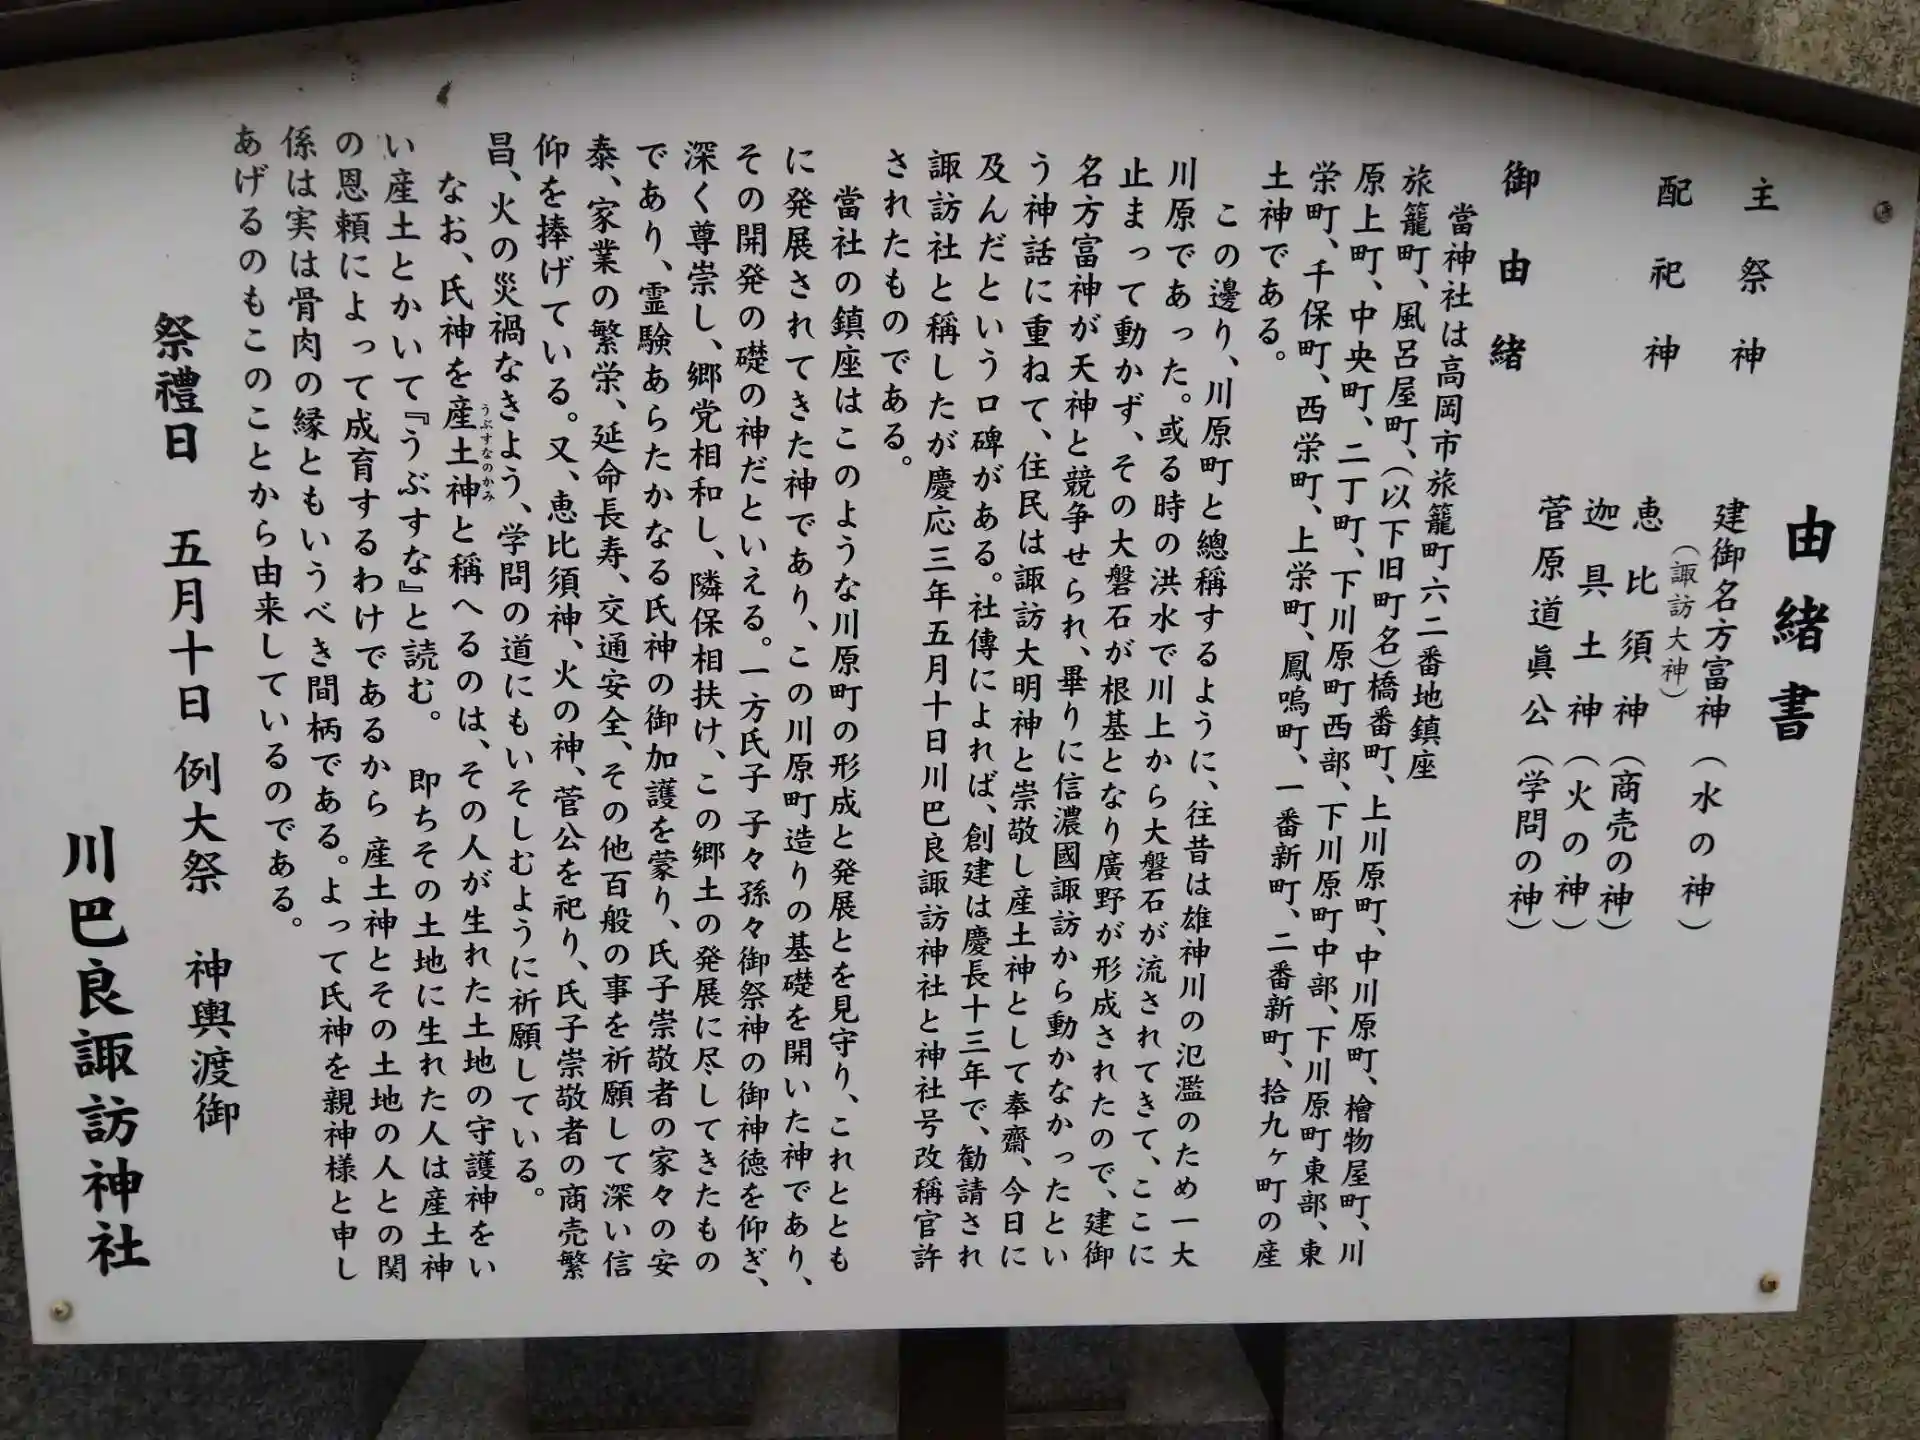 由緒書
主祭神　建御名方富神（水の神）
（諏訪大神）
配祀神　恵比須神（商売の神）
迦具土神（火の神）
菅原道眞公（学問の神）
御由緒
當神社は高岡市旅籠町六二番地鎮座
旅籠町、風呂屋町、（以下旧町名）橋番町、上川原町、中川原町、檜物屋町、川
原上町、中央町、二丁町、下川原町西部、下川原町中部、下川原町東部、東
栄町、千保町、西栄町、上栄町、鳳鳴町、一番新町、二番新町、拾九ヶ町の産
土神である。
この邊り、川原町と總稱するように、往昔は雄神川の氾濫のため一大
川原であった。或る時の洪水で川上から大磐石が流されてきて、ここに
止まって動かず、その大磐石が根基となり廣野が形成されたので、建御
名方富神が天神と競争せられ、畢りに信濃國諏訪から動かなかったとい
う神話に重ねて、住民は諏訪大明神と崇敬し産土神として奉齋、今日に
及んだという口碑がある。社傳によれば、創建は慶長十三年で、勧請され
諏訪社と稱したが慶応三年五月十日川巴良諏訪神社と神社号改稱官許
されたものである。
當社の鎮座はこのような川原町の形成と発展とを見守り、これととも
に発展されてきた神であり、この川原町造りの基礎を開いた神であり、
その開発の礎の神だといえる。一方氏子 子々孫々御祭神の御神徳を仰ぎ、
深く尊崇し、郷党相和し、隣保相扶け、この郷土の発展に尽してきたもの
であり、霊験あらたかなる氏神の御加護を蒙り、氏子崇敬者の家々の安
泰、家業の繁栄、延命長寿、交通安全、その他百般の事を祈願して深い信
仰を捧げている。又、恵比須神、火の神、菅公を祀り、氏子崇敬者の商売繁
昌、火の災禍なきよう、学問の道にもいそしむように祈願している。
なお、氏神を産土神うぶすなのかみと稱へるのは、その人が生れた土地の守護神をい
い産土とかいて『うぶすな』と読む。　即ちその土地に生れた人は産土神
の恩頼によって成育するわけであるから 産土神とその土地の人との関
係は実は骨肉の縁ともいうべき間柄である。よって氏神を親神様と申し
あげるのもこのことから由来しているのである。
祭禮日　五月十日 例大祭　神輿渡御
川巴良諏訪神社